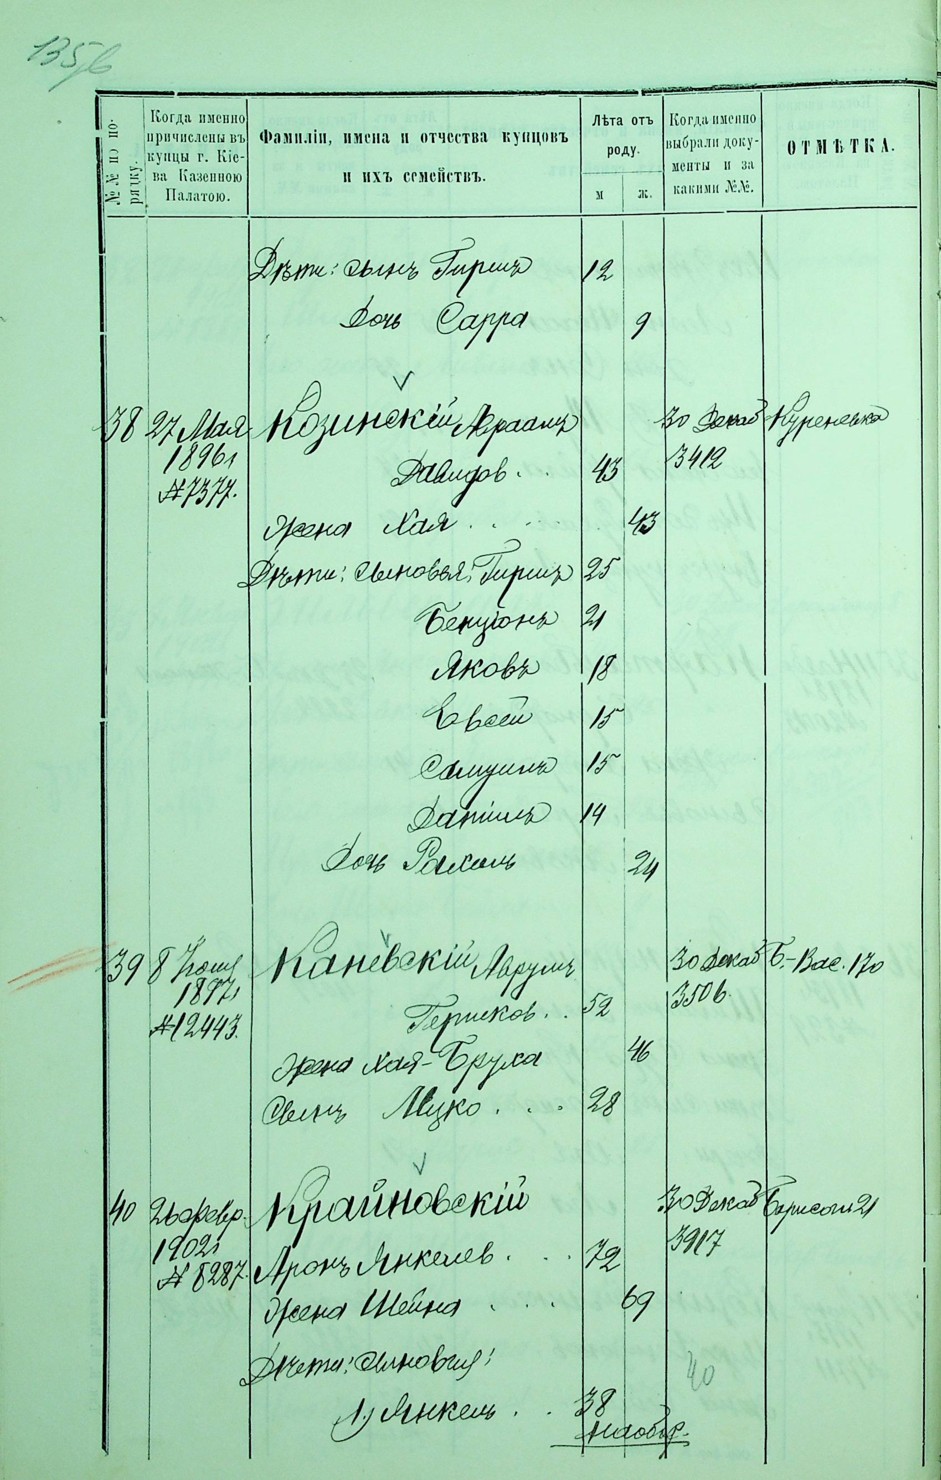 135
№№ по по-
рядку.
Когда именно
причислены въ
купцы г. Кіе-
ва Казенною
Палатою.
Фамиліи, имена и отчества купцовъ
и ихъ семействъ.
Лѣта отъ
роду.
м
ж.
Когда именно
выбрали доку-
менты и за
какими №№.
ОТМѢТКА.
Дѣти: сынъ Гиршъ 12
Дочь Сарра 9
38 27 Мая Козинскій Авраамъ 30 Декаб Куреневка
1896 г Давидов . . 43 3412
№7377.
Жена Хая . . . 43
Дѣти: сыновья: Гиршъ 25
Бенціонъ 21
Яковъ 18
Евсей 15
Самуилъ 15
Даніилъ 14
Дочь Рахиль 24
39 8 Каневскій Аврумъ 30 Декаб Б.-Вас. 170
1897 г Гершков . . 52 3506.
№12443.
Жена Хая-Бруха 46
Сынъ Мцко . . . 28
40 26 февр. Крайновскій 30 Декаб 21
1902 г Аронъ Янкелев . . . 72 3917
№8287.
Жена Шейна . . . 69
Дѣти: сыновья:
40
1) Янкель . . 38